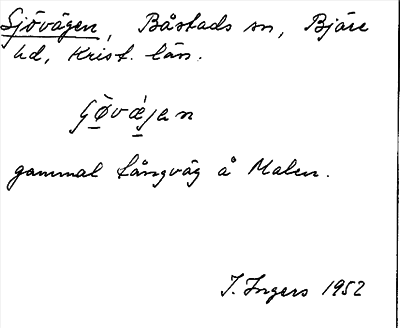 Sjövägen, Båstads sn, Bjäre
hd, Krist. län.
gammal tångväg å Malen.
I. Ingers 1952